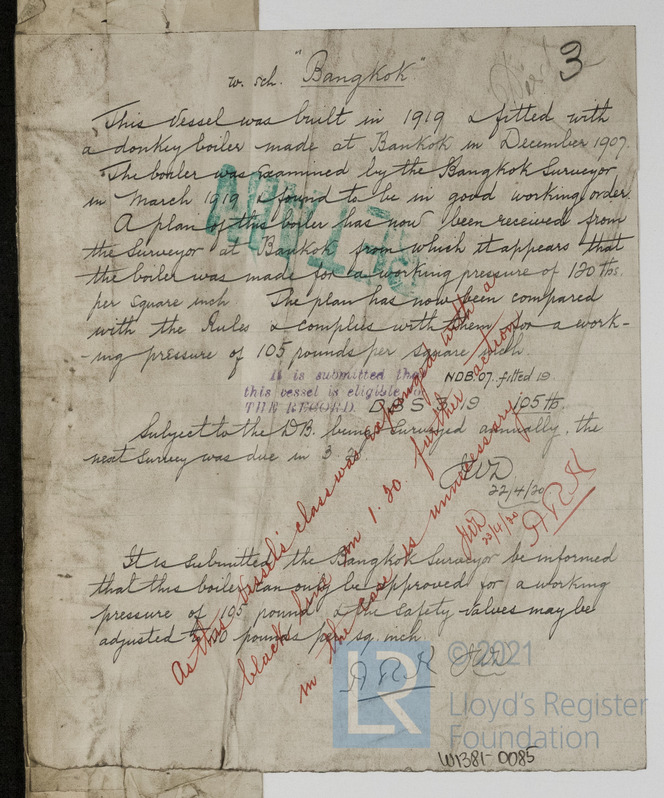 3
w. sch. "Bangkok"
This vessel was built in 1919 & fitted with
a donkey boiler made at Bankok in December 1907.
The boiler was examined by the Bangkok Surveyor
in March 1919 & found to be in good working order
A plan of this boiler has now been received from
the Surveyor at Bankok from which it appears that
the boiler was made for a working pressure of 120 lbs.
per square inch The plan has now been compared
with the Rules & complies with them for a work-
-ing pressure of 105 pounds per square inch.
It is submitted that
this vessel is eligible for
THE RECORD.
NDB.07. fitted 19
DBS 3.19 105 lb.
Subject to the DB. being surveyed annually, the
next survey was due in 3.
22/4/20
It is submitted the Bangkok Surveyor be informed
that this boiler can only be approved for a working
pressure of 105 pounds & the safety valves may be
adjusted to pounds per sq. inch.
As this vessel's class was expunged with a
black line in 1.20. further action
in the case is unnecessary
23/4/20
ARK
ARK
LR
© 2021
Lloyd's Register
Foundation
W1381-0085